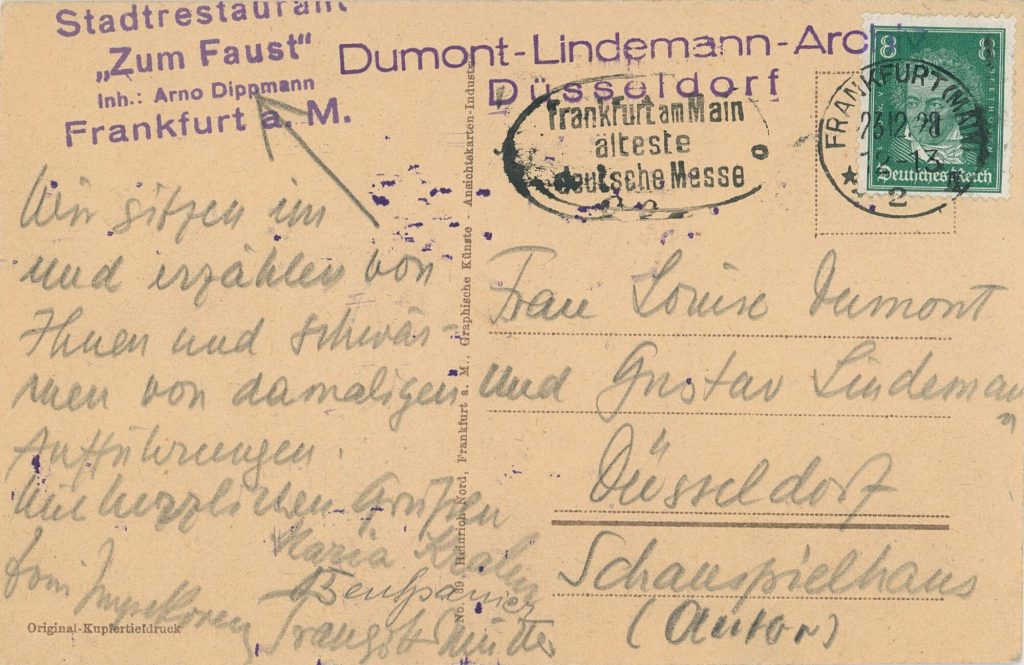 Stadtrestaurant
„Zum Faust“
Inh.: Arno Dippmann
Frankfurt a. M.
Dumont-Lindemann-Archiv
Düsseldorf
Frankfurt am Main
älteste
deutsche Messe
FRANKFURT (MAIN)
12-13
2
8 8
Deutsches Reich
Wir sitzen im
und erzählen von
Ihnen und schwär-
men von damaligen
Aufführungen.
Mit herzlichen Grüßen
Maria
No. 99, Heinrich Nord, Frankfurt a. M., Graphische Künste - Ansichtskarten-Industrie
Frau Louise Dumont
und Gustav Lindemann
Düsseldorf
Schauspielhaus
(Autor)
Original-Kupfertiefdruck